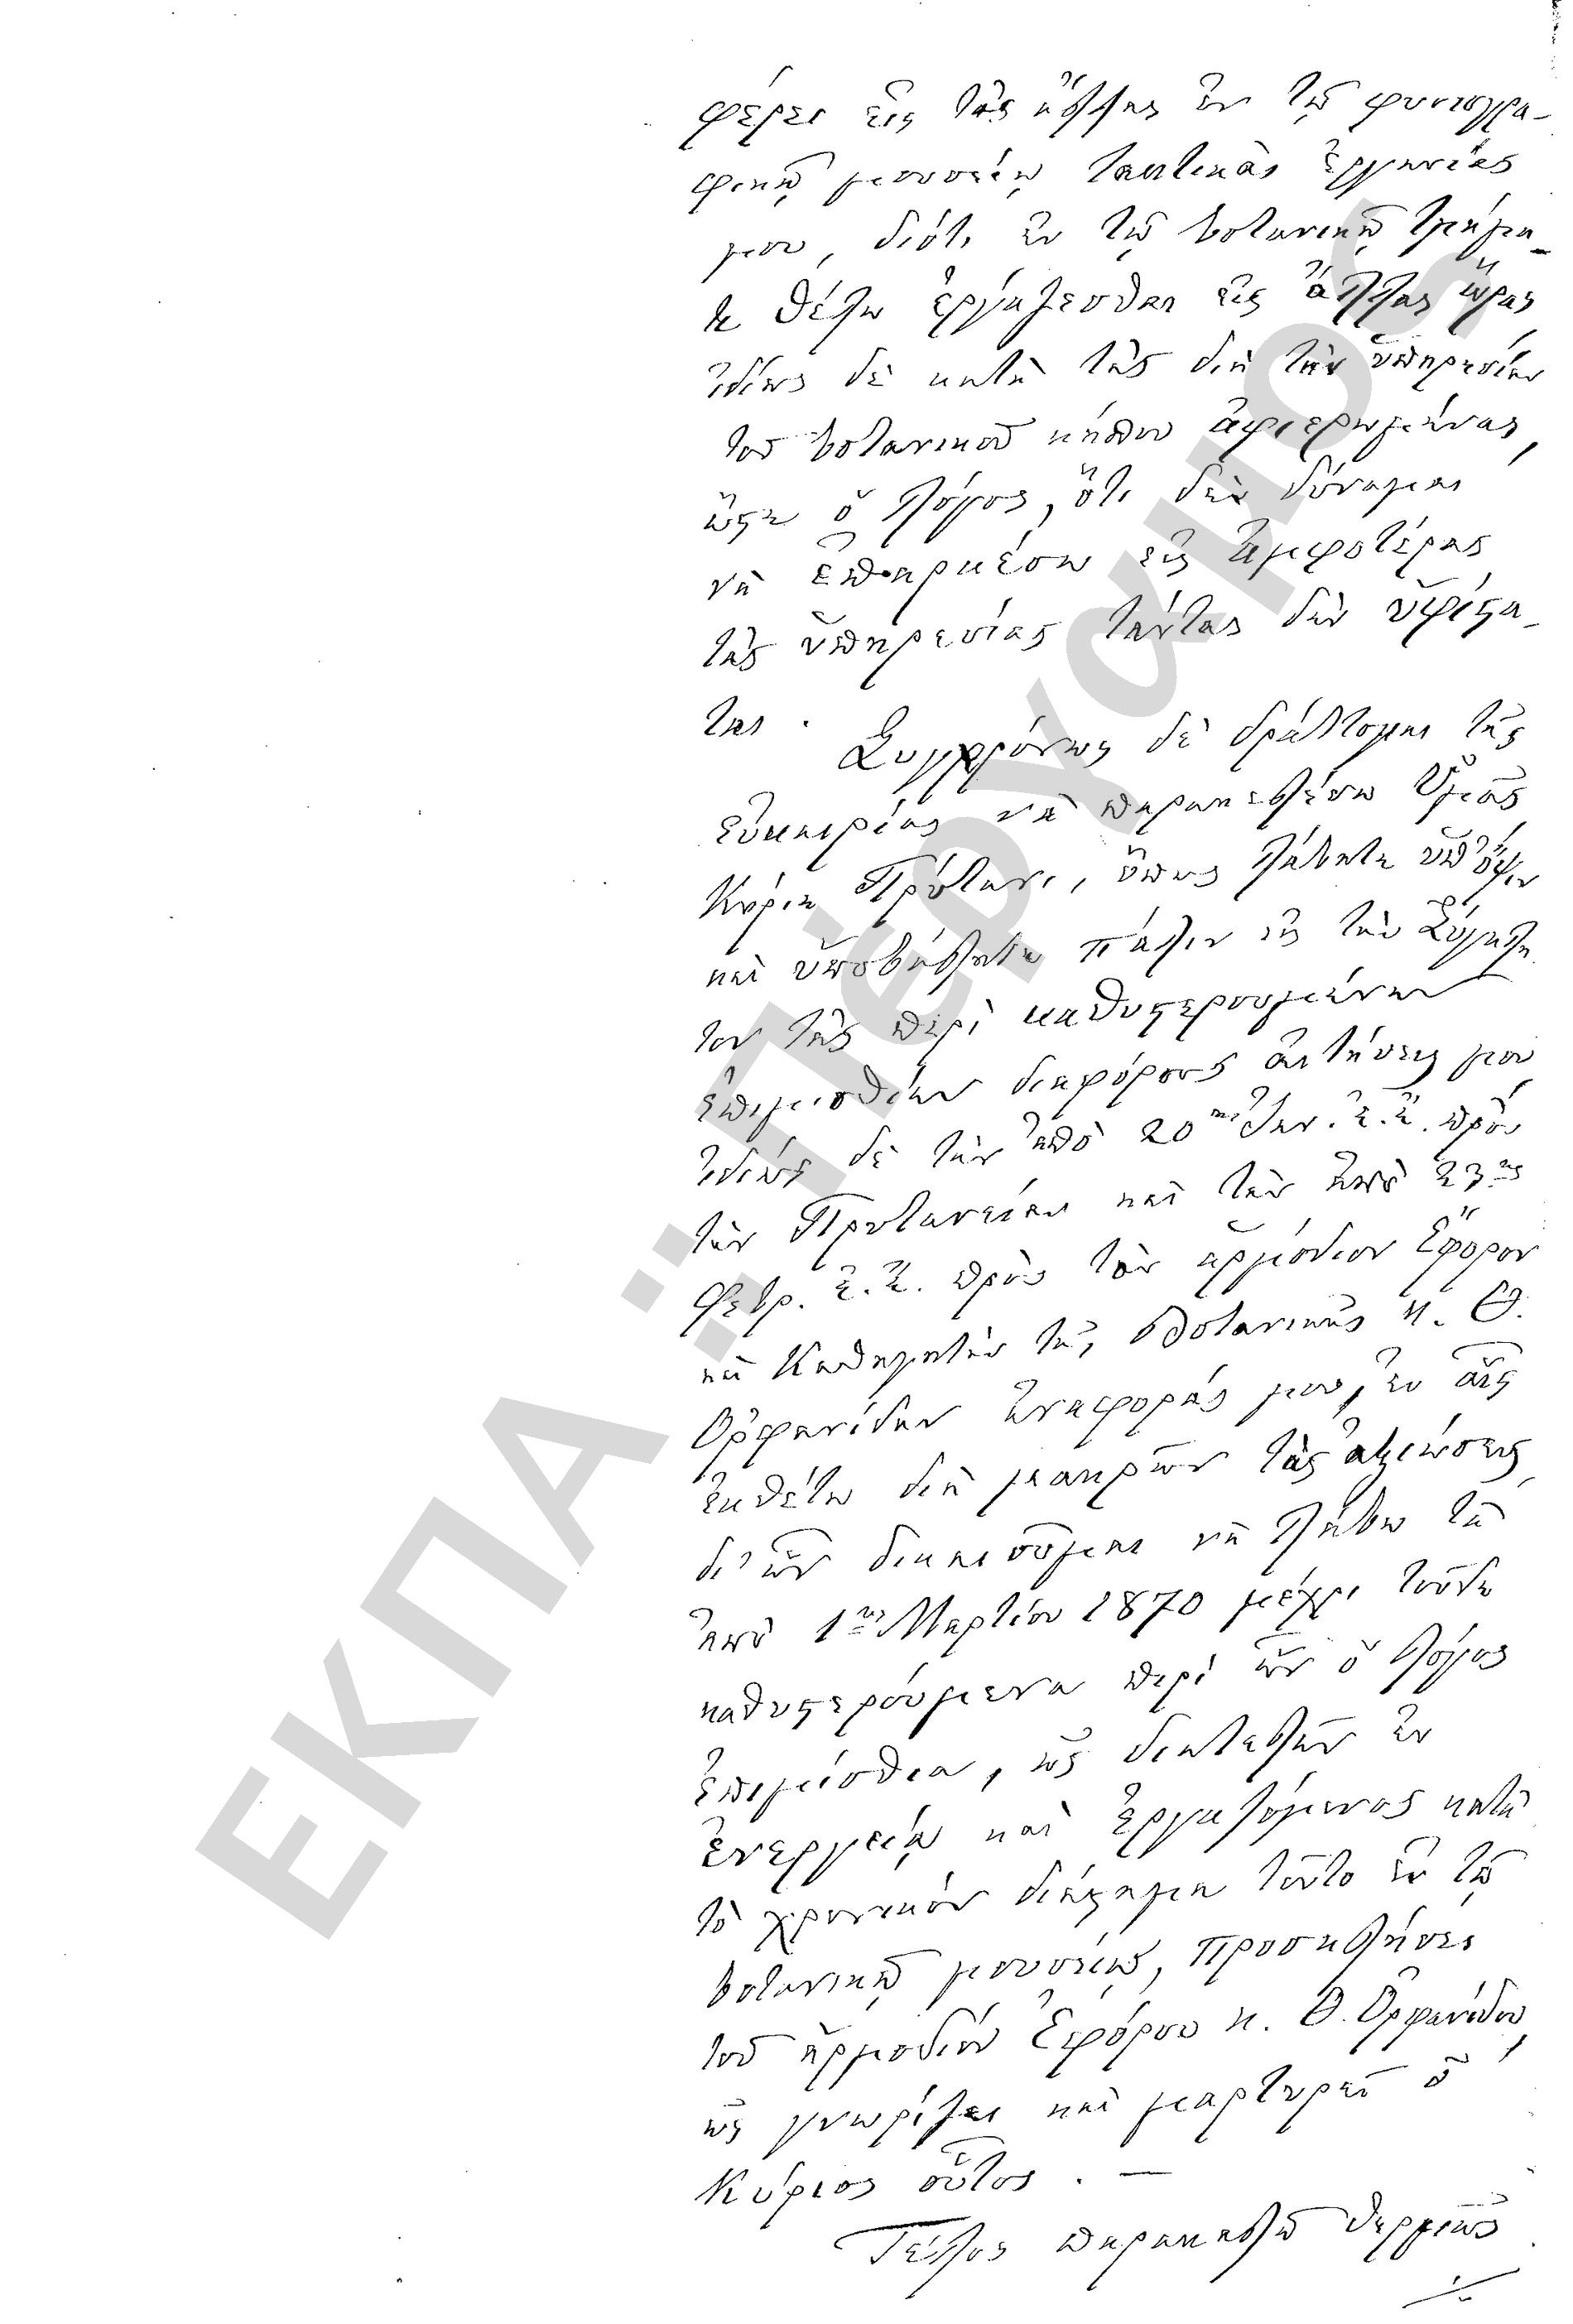 φέρει εἰς τὰς ἄλλας ἐν τῷ φυσιογρα-
φικῷ μουσείῳ τακτικὰς ἐργασίας
μου, διότι ἐν τῷ βοτανικῷ τμήμα-
τι θέλω ἐργάζεσθαι εἰς ἄλλας ὥρας
ἰδίως δὲ κατὰ τὰς διὰ τὴν ὑπηρεσίαν
τοῦ βοτανικοῦ κήπου ἀφιερωμένας,
ὥστε ὁ λόγος, ὅτι δὲν δύναμαι
νὰ ἐπαρκέσω εἰς ἀμφοτέρας
τὰς ὑπηρεσίας ταύτας δὲν ὑφίστα-
ται.
Συγχρόνως δὲ δράττομαι τῆς
εὐκαιρίας νὰ παρακαλέσω Ὑμᾶς
Κύριε Πρύτανι, ὅπως λάβητε ὑπ' ὄψιν
καὶ ὑποβάλητε πάλιν εἰς τὴν Σύγκλη
τον τὰς περὶ καθυστερουμένων
ἐπιμισθίων διαφόρους αἰτήσεις μου
ἰδίως δὲ τὴν ἀπὸ 20ης Ἰαν. ἐ.ἔ. πρὸς
τὴν Πρυτανείαν καὶ τὴν ἀπὸ 23ης
Φεβρ. ἐ.ἔ. πρὸς τὸν ἁρμόδιον Ἔφορον
καὶ Καθηγητὴν τῆς Βοτανικῆς κ. Θ.
Ὀρφανίδην ἀναφοράς μου, ἐν αἷς
ἐκθέτω διὰ μακρῶν τὰς ἀξιώσεις,
δι' ὧν δικαιοῦμαι νὰ λάβω τὰ
ἀπὸ 1ης Μαρτίου 1870 μέχρι τοῦδε
καθυστερούμενα περὶ ὧν ὁ λόγος
ἐπιμίσθια, ὡς διατελῶν ἐν
ἐνεργείᾳ καὶ ἐργαζόμενος κατὰ
τὸ χρονικὸν διάστημα τοῦτο ἐν τῷ
βοτανικῷ μουσείῳ, προσκλήσει
τοῦ ἁρμοδίου Ἐφόρου κ. Θ. Ὀρφανίδου,
ὡς γνωρίζει καὶ μαρτυρεῖ ὁ
Κύριος οὗτος. —
Τέλος παρακαλῶ θερμῶς
ΕΚΠΑ "Πέργαμος"